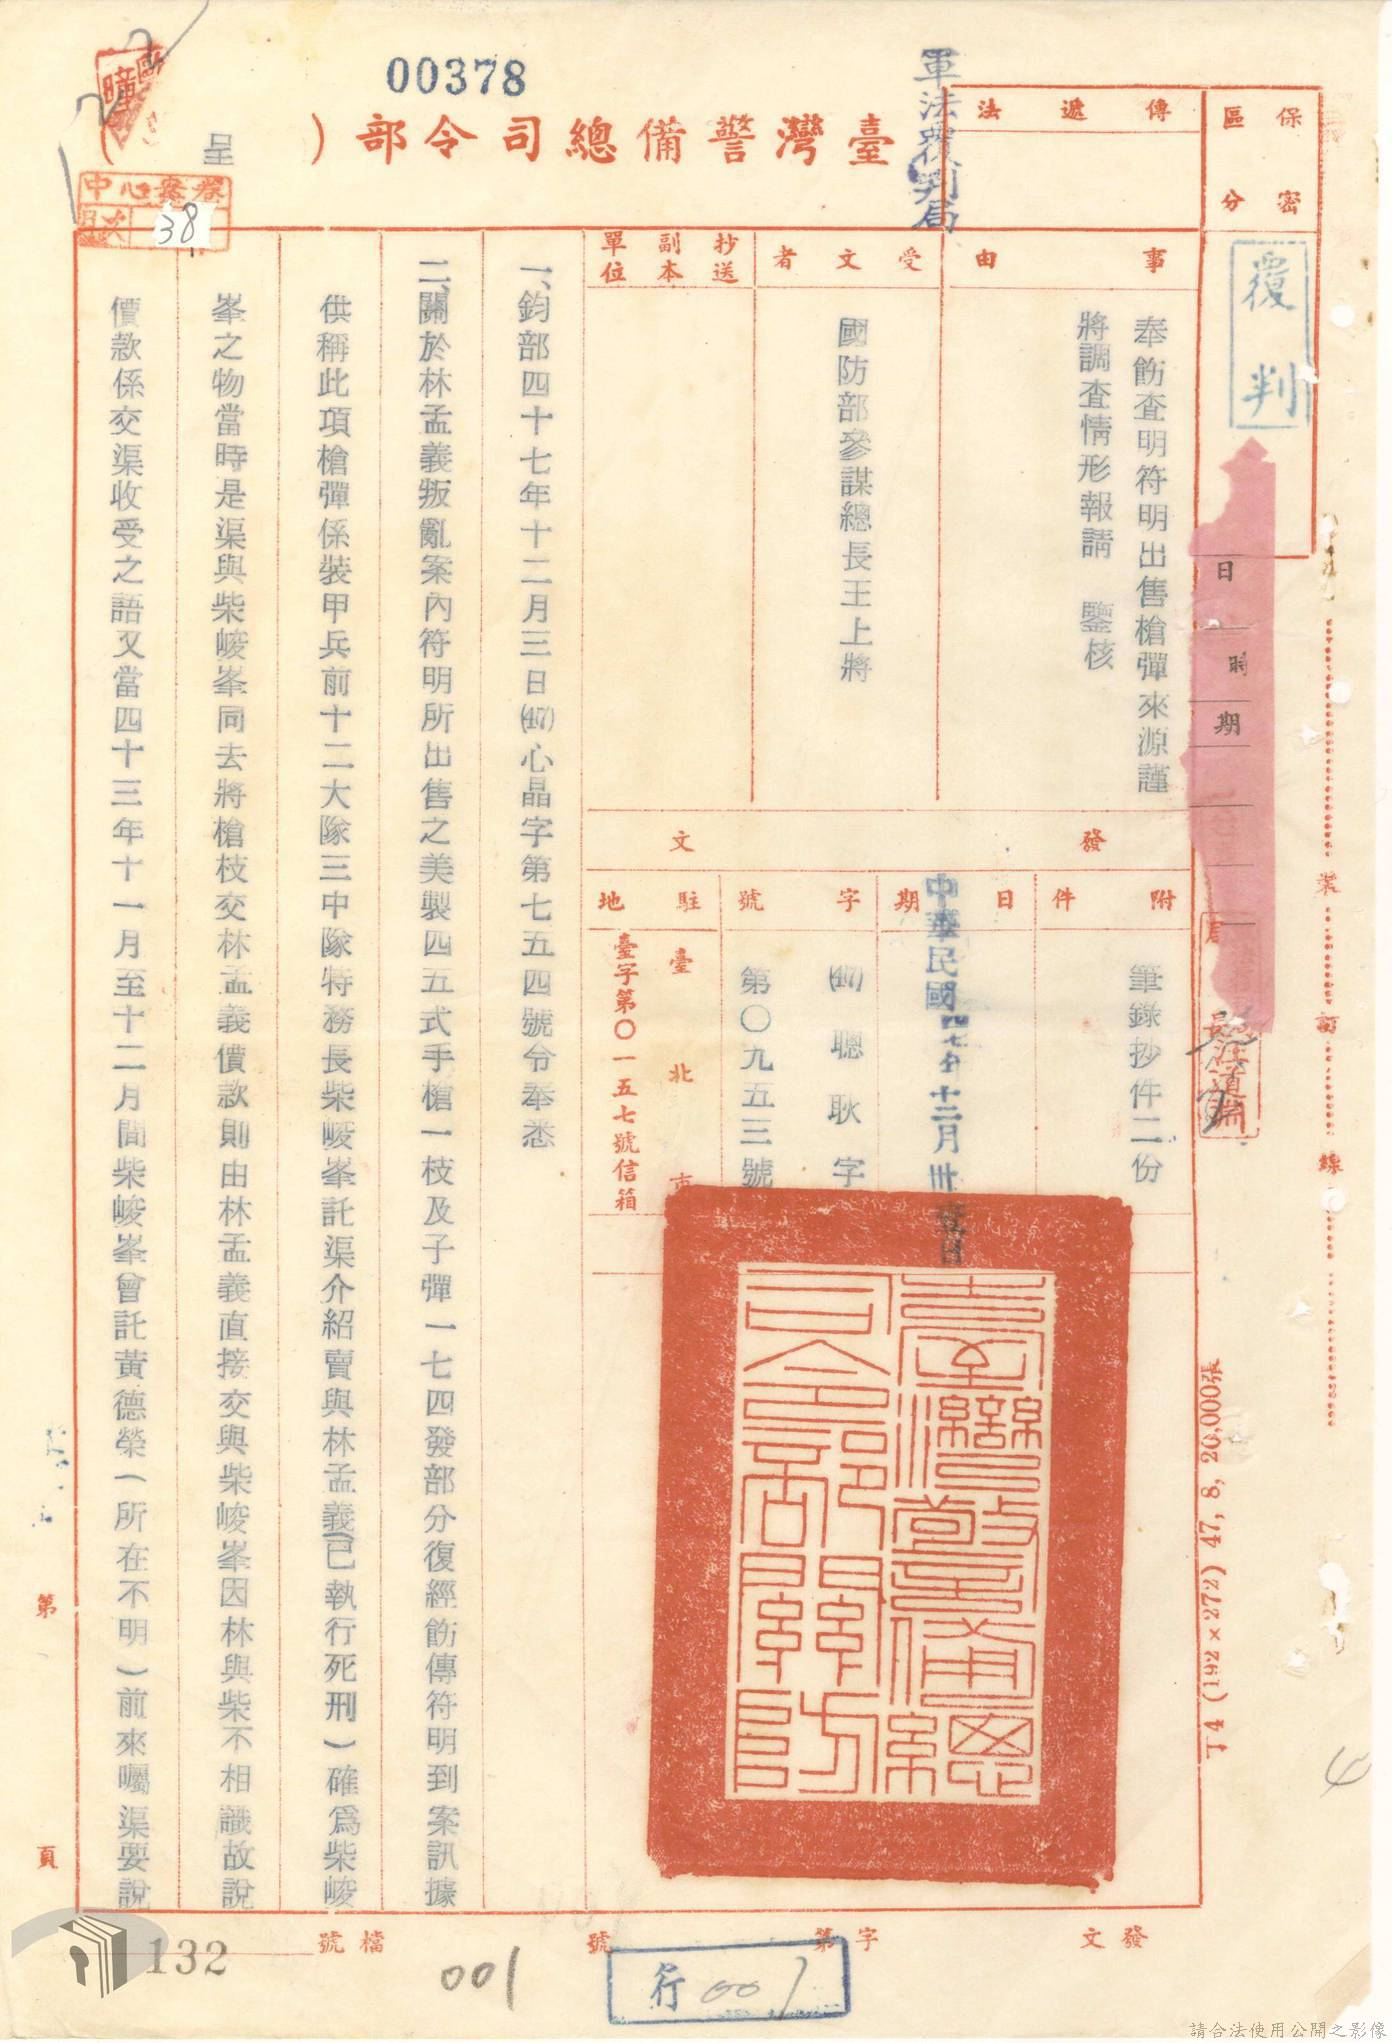 00378
臺灣警備總司令部(
呈
)
軍法覆判局
中心案卷
目次
38
保密
區分
覆判
傳遞
法
事由
奉飭查明符明出售槍彈來源謹
將調查情形報請 鑒核
受文者
國防部參謀總長王上將
抄送
副本
單位
日
時
期
發文
附件
筆錄抄件二份
日期
中華民國四七年十二月卅
字號
(47)聰耿字
第〇九五三號
駐地
臺北市
臺字第〇一五七號信箱
臺灣警備總
司令部關防
一、鈞部四十七年十二月三日(47)心晶字第七五四號令奉悉
二、關於林孟義叛亂案內符明所出售之美製四五式手槍一枝及子彈一七四發部分復經飭傳符明到案訊據
供稱此項槍彈係裝甲兵前十二大隊三中隊特務長柴峻峯託渠介紹賣與林孟義(已執行死刑)確爲柴峻
峯之物當時是渠與柴峻峯同去將槍枝交林孟義價款則由林孟義直接交與柴峻峯因林與柴不相識故說
價款係交渠收受之語又當四十三年十一月至十二月間柴峻峯曾託黃德榮(所在不明)前來囑渠要說
裝
訂
線
T4(192×272) 47, 8, 20,000張
第
頁
發文
字第
號
檔號
132
001
行001
請合法使用公開之影像